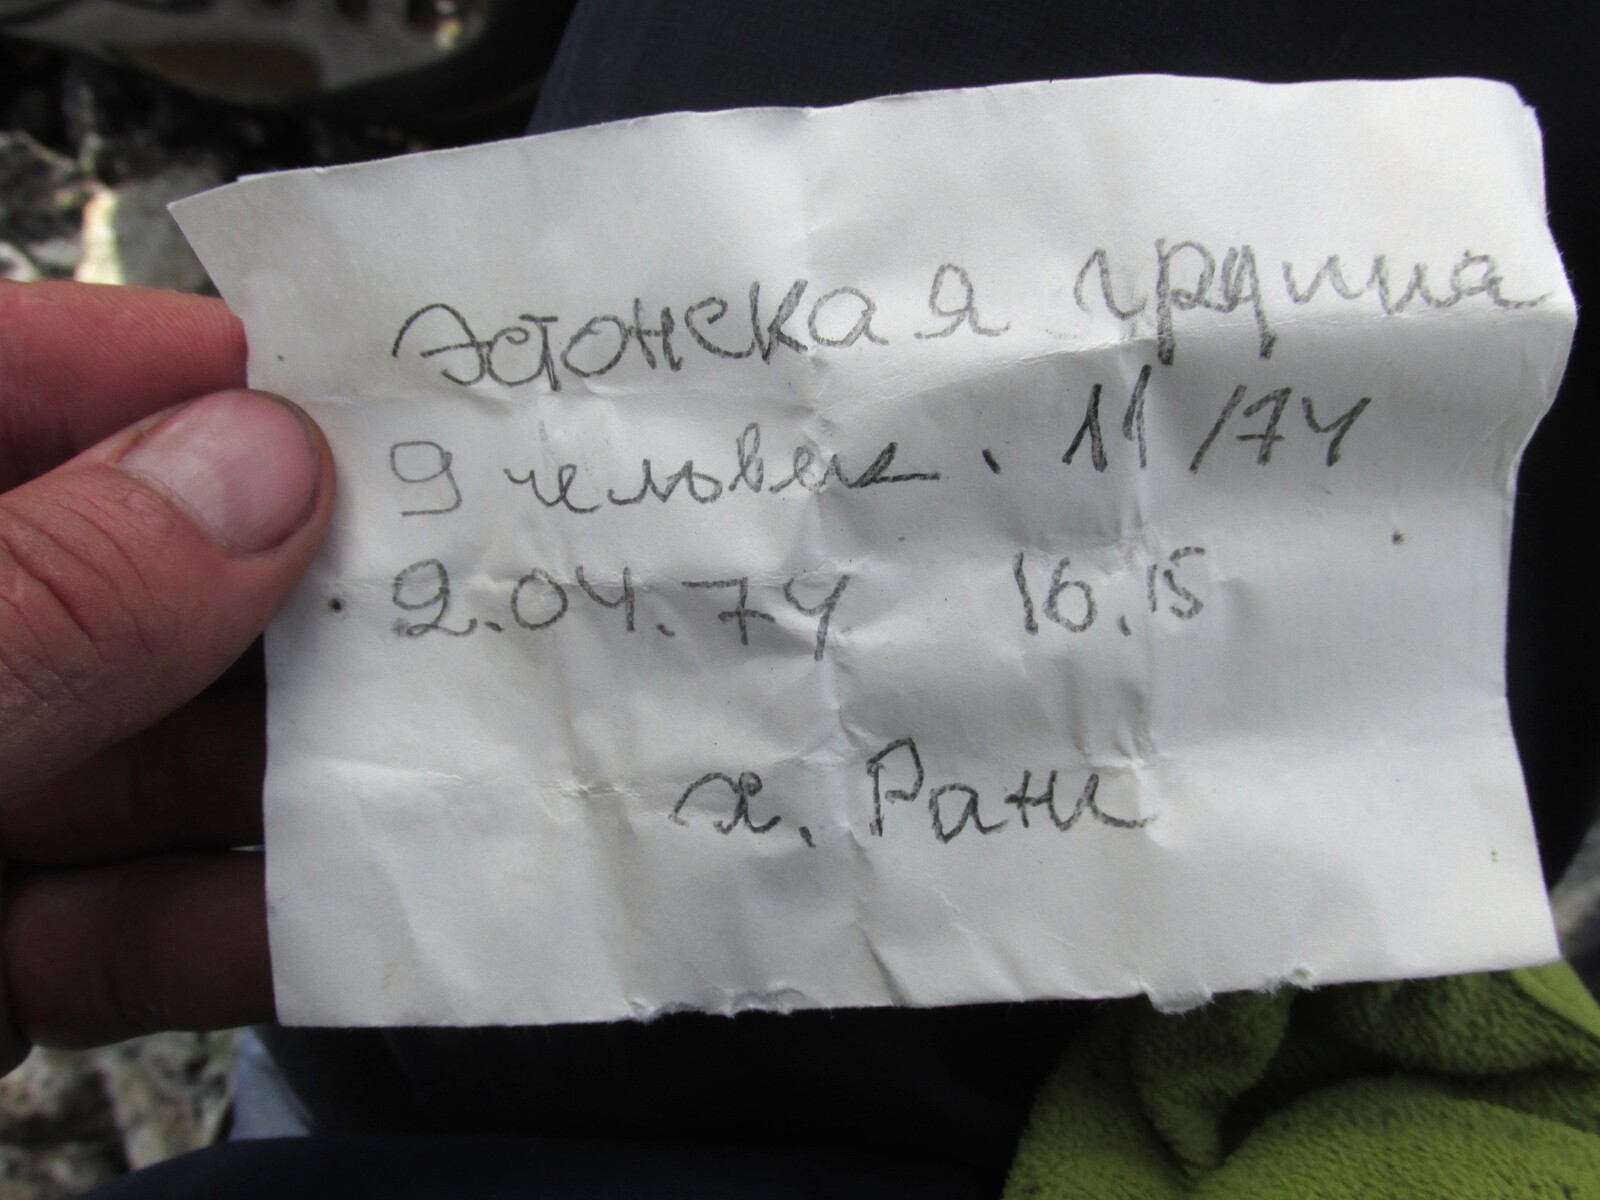 Эстонская группа
9 человек. 11/74
2.04.74 16.15
х. Ранк